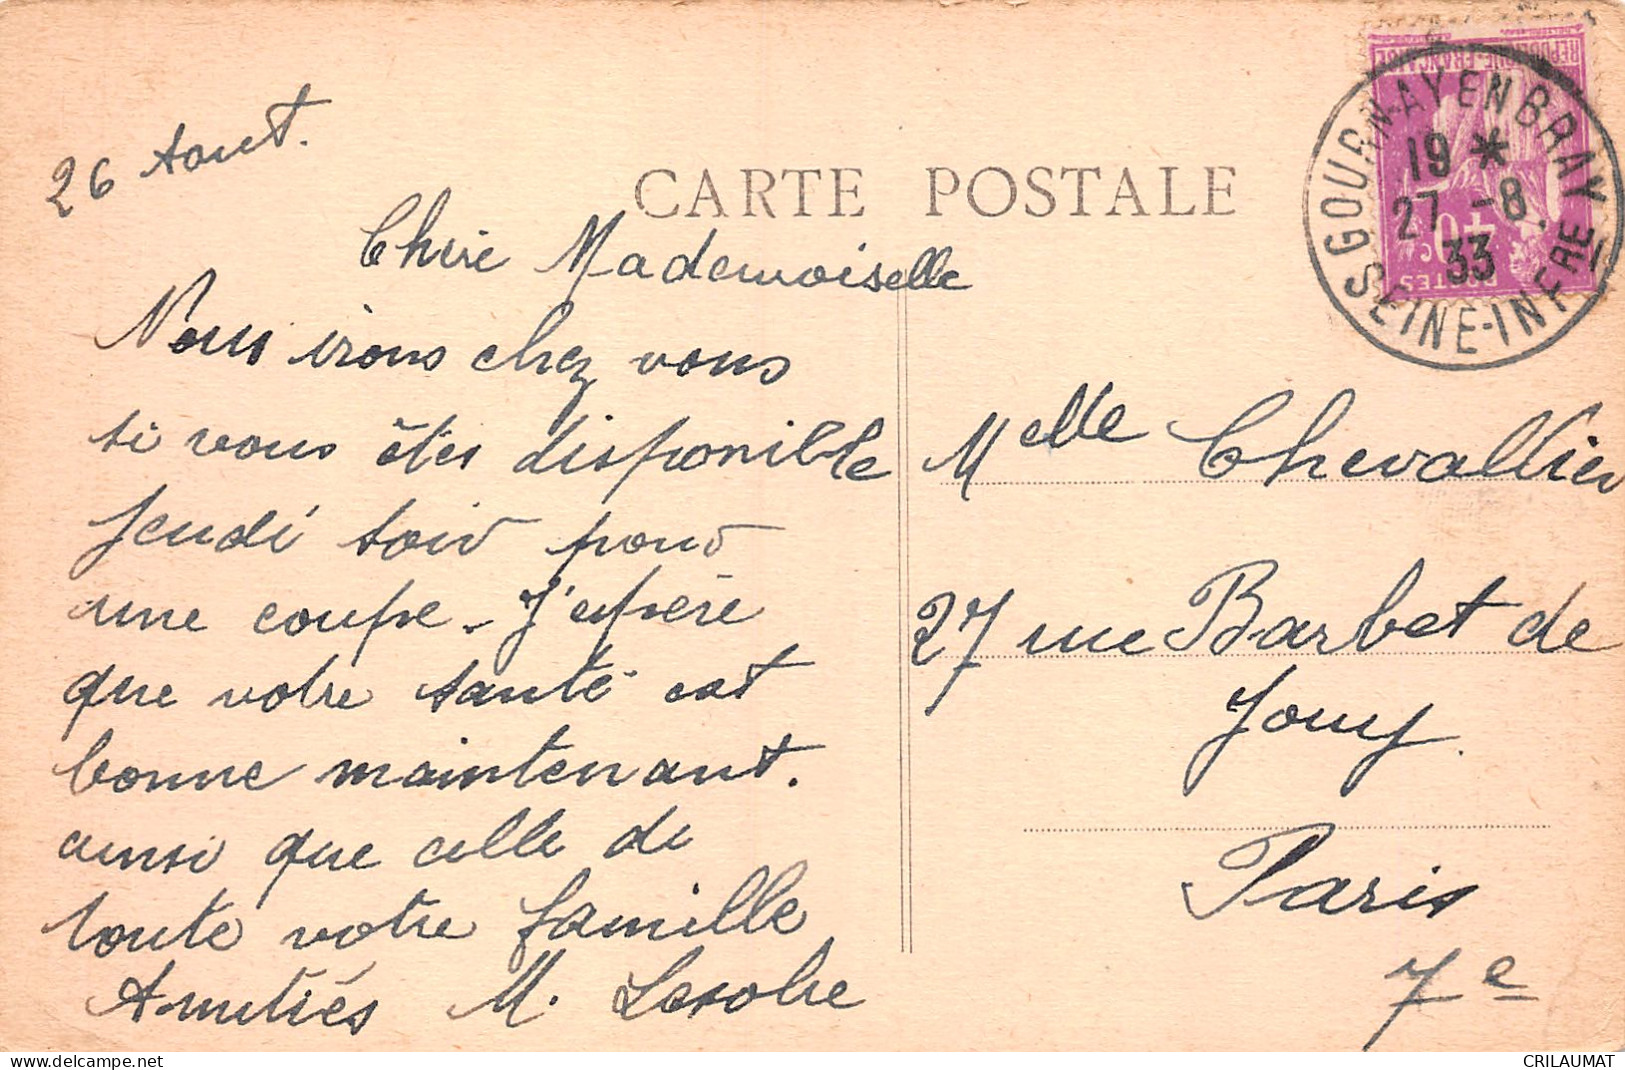 26 Aout.
CARTE POSTALE
Chère Mademoiselle
Nous irons chez vous
si vous êtes disponible
Jeudi soir pour
une coupe - J'espère
que votre santé est
bonne maintenant.
ainsi que celle de
toute votre famille
Amitiés M.
GOURNAY EN BRAY
19 *
27 -8.
33
SEINE-INFRE
REPUBLIQUE-FRANÇAISE
40c
POSTES
Melle Chevallier
27 rue Barbet de
Jouy.
Paris
7e
delcampe.net
CRILAUMAT